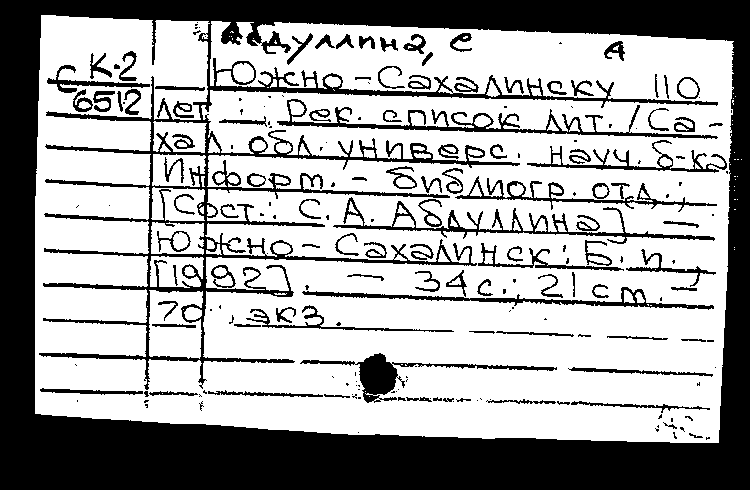 Абдуллина, С А
С К-2 Южно-Сахалинску 110
6512 лет : Рек. список лит. / Са-
хал. обл. универс. науч. б-ка
Информ. - библиогр. отд.;
[Сост.: С. А. Абдуллина]. —
Южно-Сахалинск: Б. и.,
[1992]. — 34 с.; 21 cm. —
70 экз.